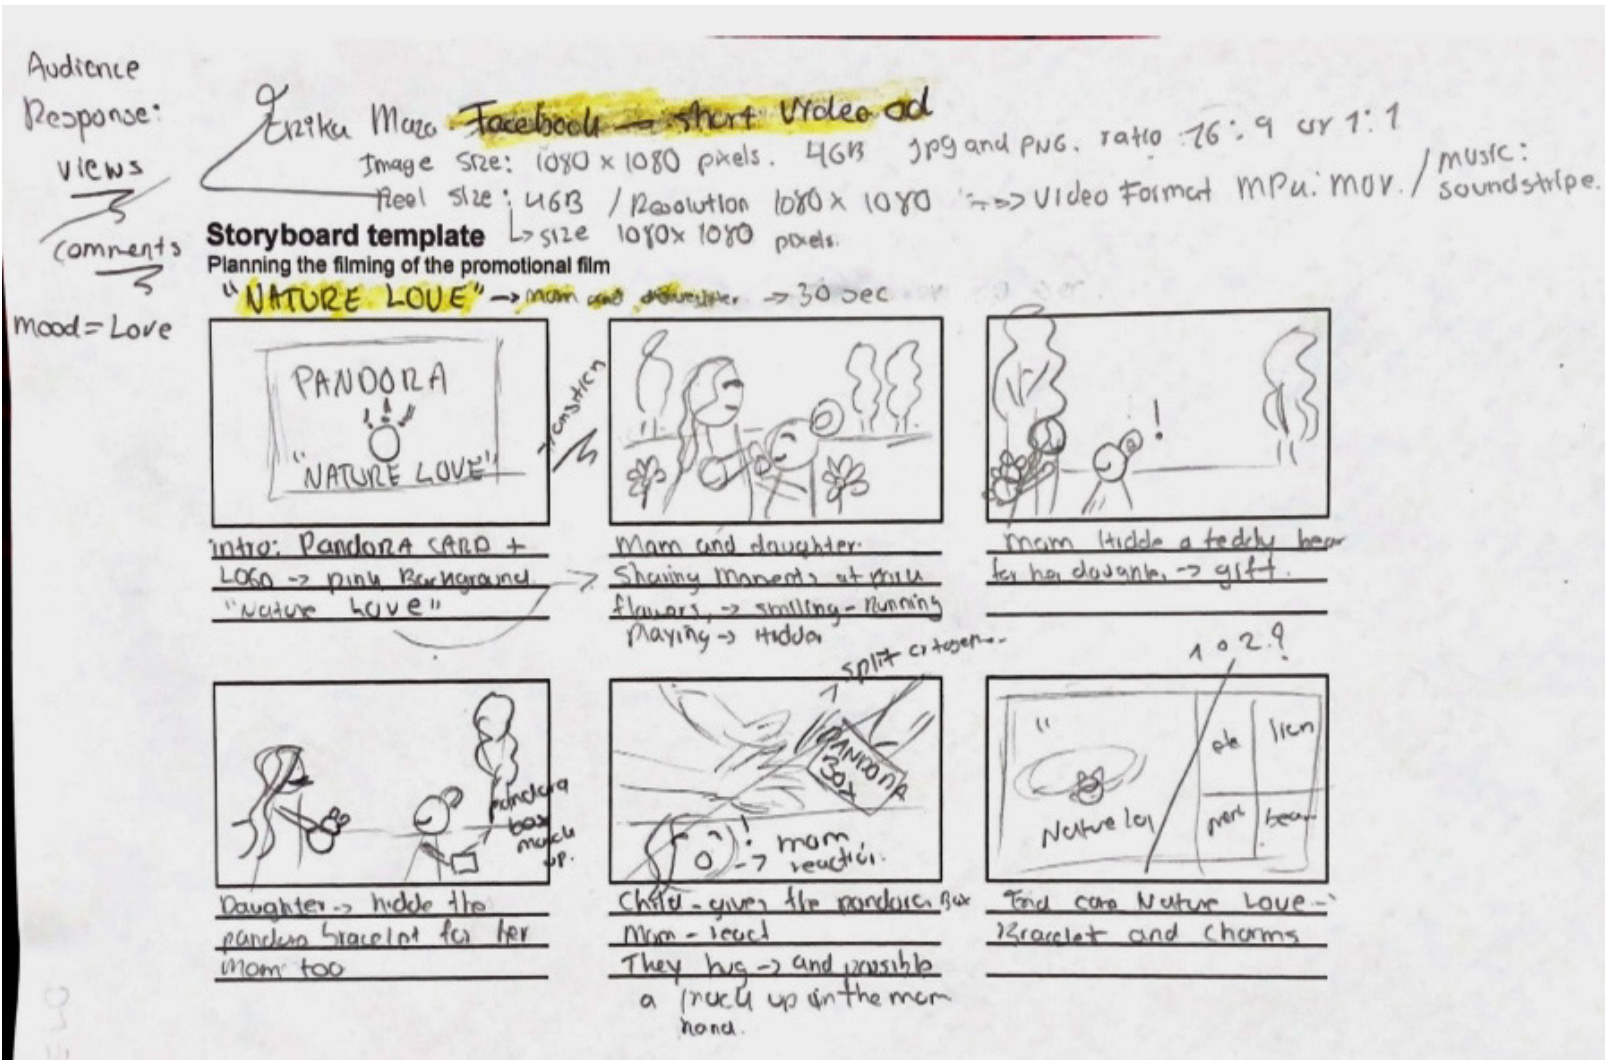 Audience
Response:
views
comments
mood = Love
Erika Maza Facebook → short video ad
Image size: 1080 x 1080 pixels. 4GB Jpg and PNG. ratio 16:9 or 1:1
Reel size: 4GB / Resolution 1080 x 1080 → video Format MPu. mov. / music:
soundstripe.
↳ size 1080x 1080 pixels.
Storyboard template
Planning the filming of the promotional film
"NATURE LOVE" → mom and daughter → 30 sec
PANDORA
"NATURE LOVE"
transition
!
intro: PandoRA CARD +
LOGO → pink Background
"Nature Love"
Mam and daughter.
Sharing Moments at
flowers, → smiling - Running
Playing →
mam Hidde a teddy bear
for her → gift.
pandora
box
mock
up.
Daughter → hidde the
pandora bracelet for her
Mom too
split
PANDORA
BOX
!
→ mom
reaction.
Child - gives the pandora Box
Mom - react
They hug → and possible
a mock up in the mom
hand.
1 o 2.?
"
Nature
lion
bear
End Nature Love -
Bracelet and Charms